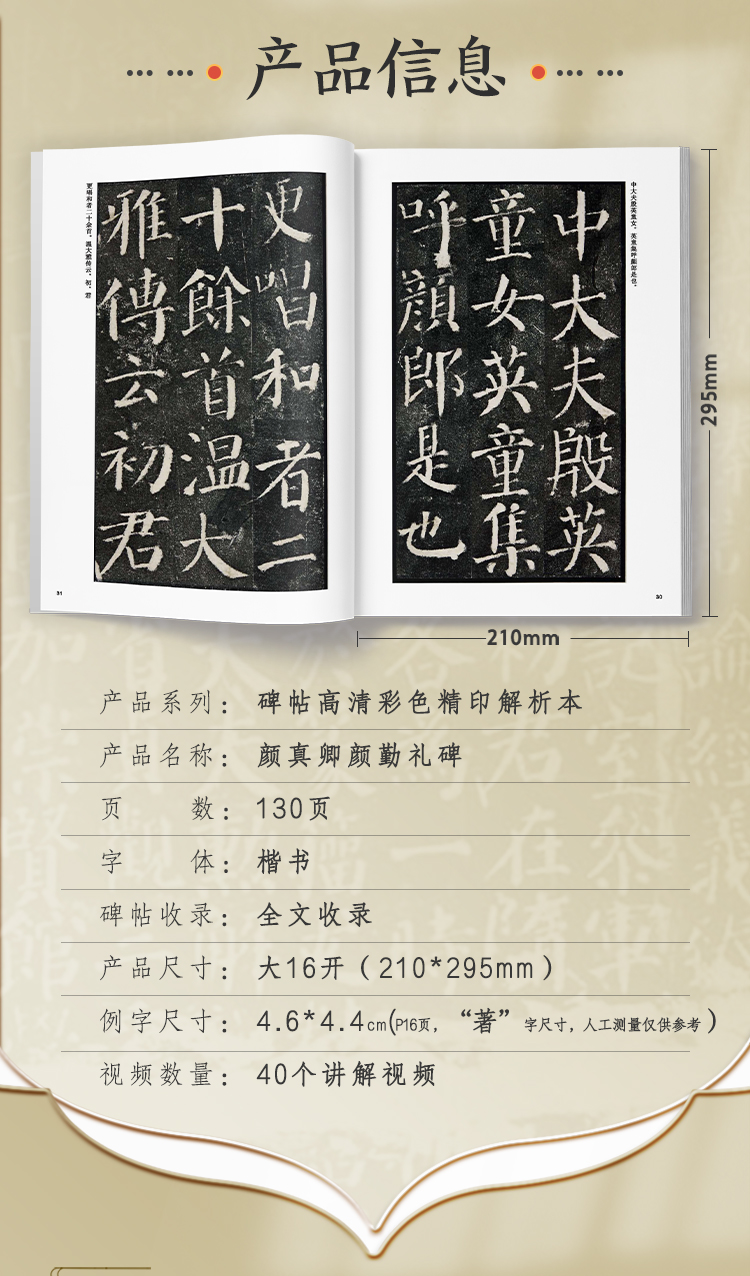 产品信息
中大夫殷英女。英童集呼颜郎是也。
中大夫殷英
童女英童集
呼顔郎是也
更唱和者二十余首。温大雅传云。初。君
更唱和者二
十餘首温大
雅傳云初君
31
30
295mm
210mm
产品系列：碑帖高清彩色精印解析本
产品名称：颜真卿颜勤礼碑
页 数：130页
字 体：楷书
碑帖收录：全文收录
产品尺寸：大16开（210*295mm）
例字尺寸：4.6*4.4cm(P16页，“著”字尺寸，人工测量仅供参考)
视频数量：40个讲解视频